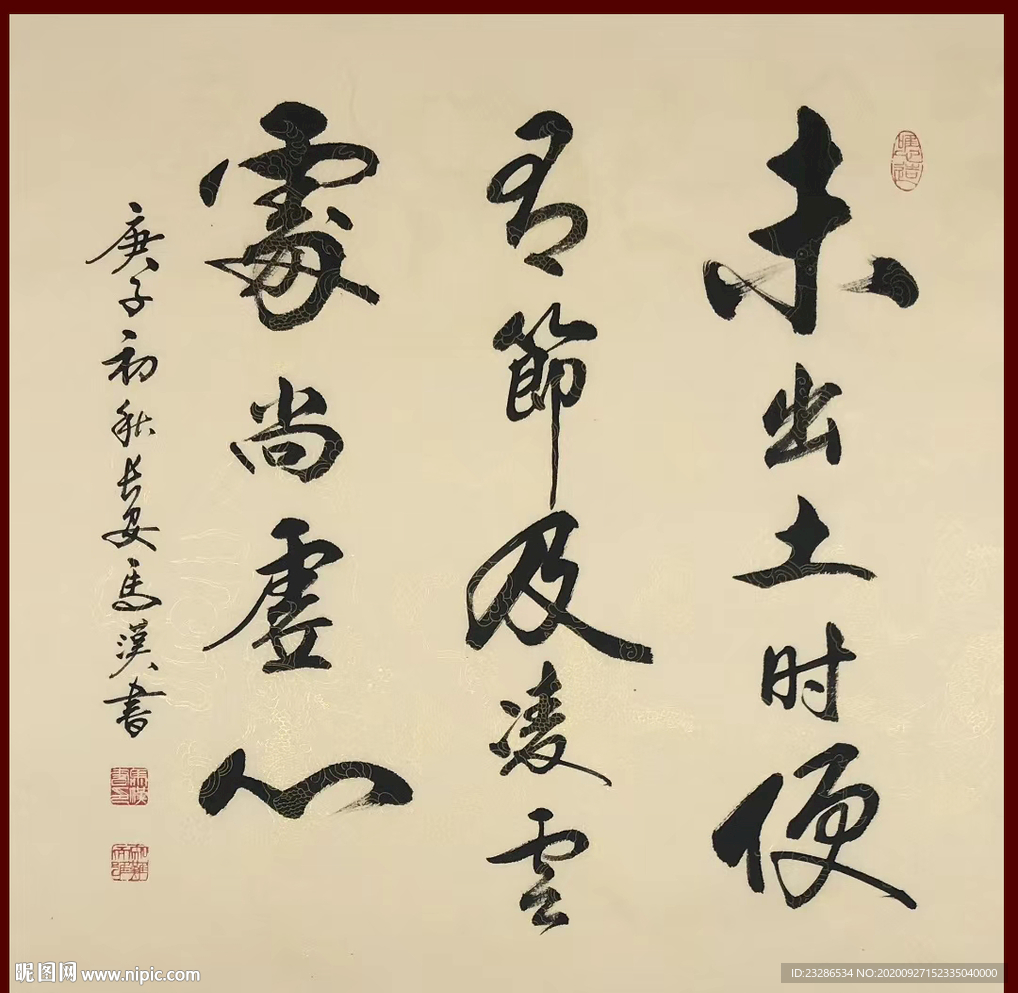 未出土时便
有節及凌雲
處尚虛心
庚子初秋長安馬漢書
昵图网 www.nipic.com
ID:23286534 NO:20200927152335040000